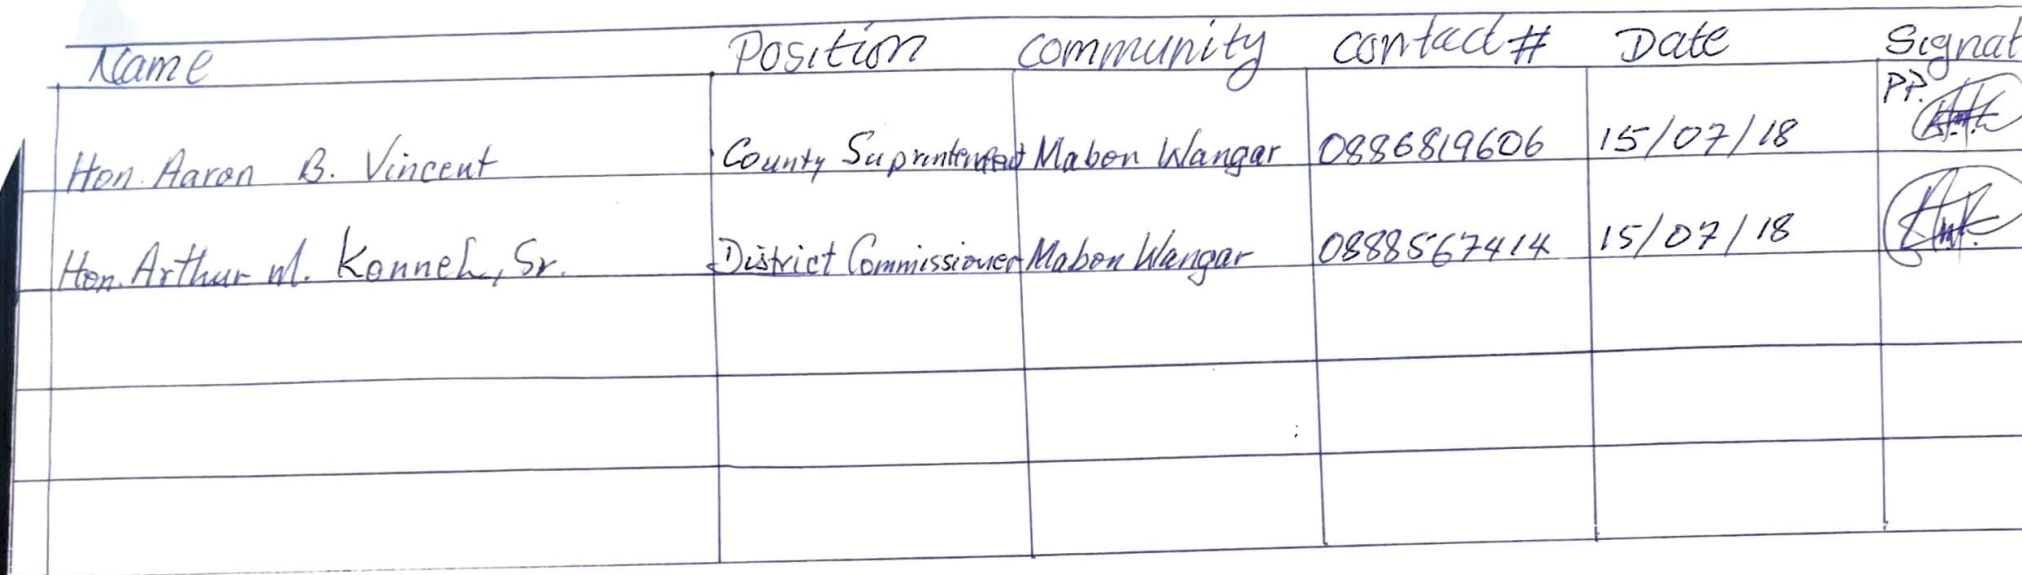 Name Position Community Contact # Date Signat
PP.
Hon. Aaron B. Vincent County Suprintendent Mabon Wangar 0886819606 15/07/18
Hon. Arthur M. Konneh, Sr. District Commissioner Mabon Wangar 0888567414 15/07/18